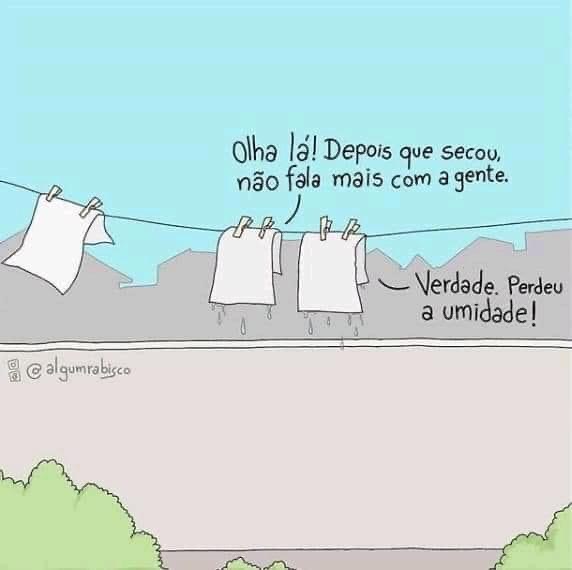 Olha lá! Depois que secou,
não fala mais com a gente.
Verdade. Perdeu
a umidade!
@algumrabisco